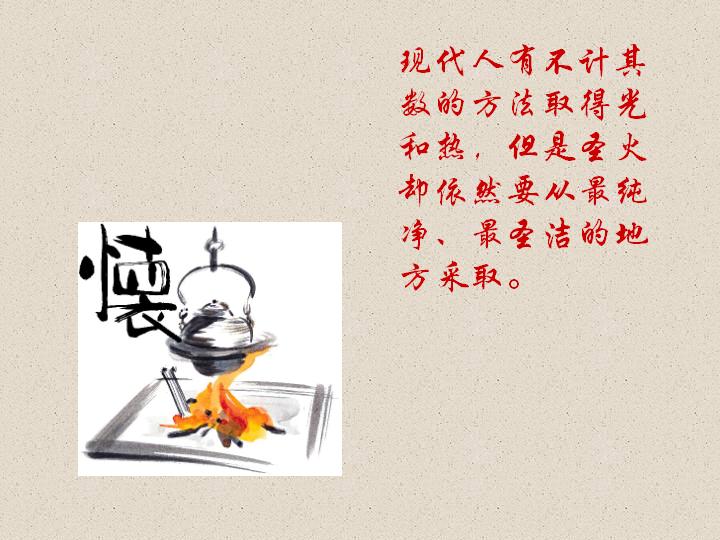 现代人有不计其
数的方法取得光
和热，但是圣火
却依然要从最纯
净、最圣洁的地
方采取。
懐